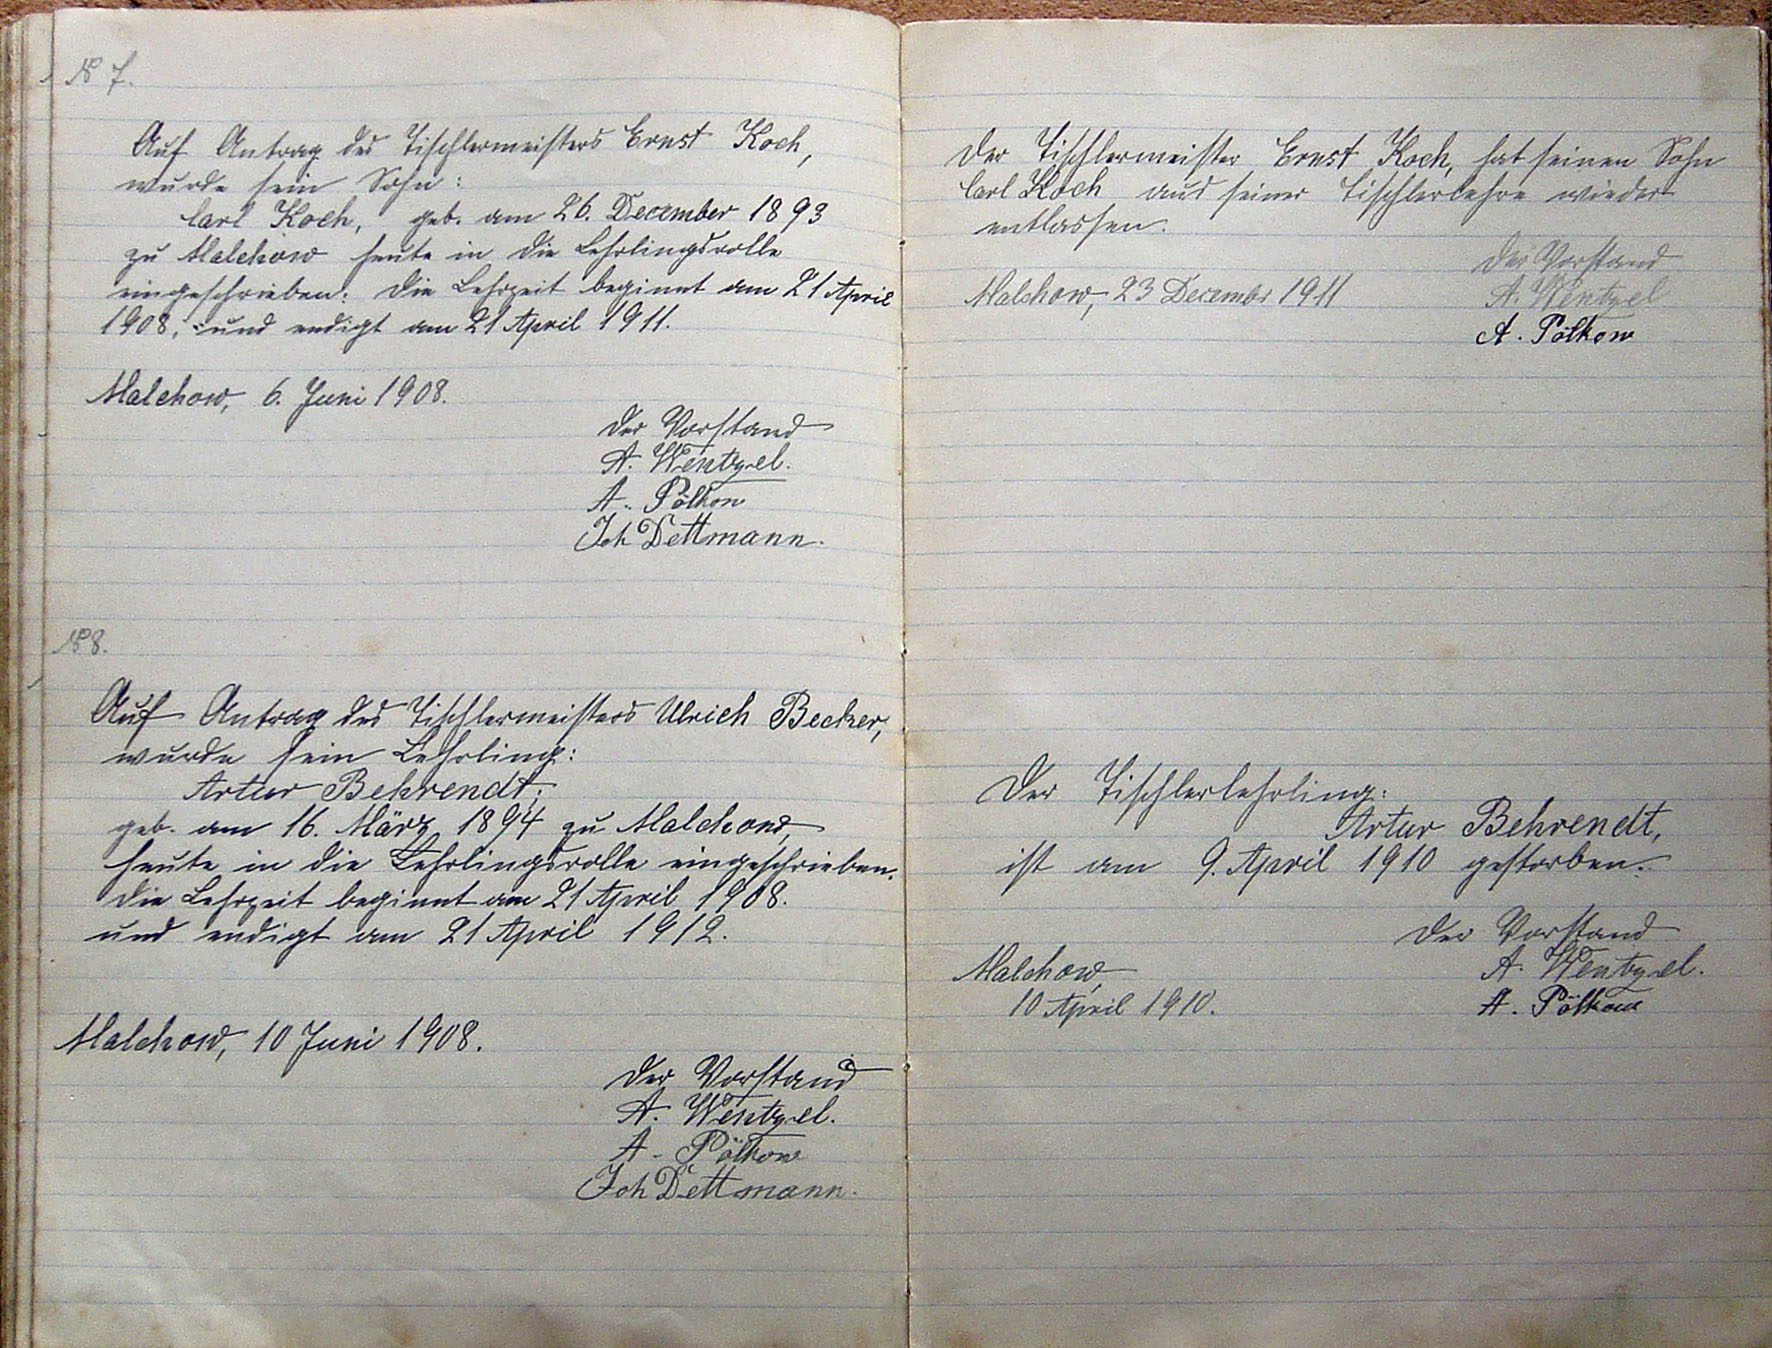 № 7.
Auf Antrag des Tischlermeisters Ernst Koch,
wurde sein Sohn:
Carl Koch, geb. am 26. December 1893
zu Malchow heute in die Lehrlingsrolle
eingeschrieben. Die Lehrzeit beginnt am 21 April
1908, und endigt am 21 April 1911.
Malchow, 6. Juni 1908.
Der Vorstand
A. Wentzel.
A. Pölkow
Joh Dettmann.
№ 8.
Auf Antrag des Tischlermeisters Ulrich Becker,
wurde sein Lehrling:
Artur Behrendt,
geb. am 16. März 1894 zu Malchow,
heute in die Lehrlingsrolle eingeschrieben.
Die Lehrzeit beginnt am 21 April 1908.
und endigt am 21 April 1912.
Malchow, 10 Juni 1908.
Der Vorstand
A. Wentzel.
A. Pölkow
Joh Dettmann.
Der Tischlermeister Ernst Koch, hat seinen Sohn
Carl Koch aus seiner Tischlerlehre wieder
entlassen.
Der Vorstand
Malchow, 23 December 1911
A. Wentzel
A. Pölkow
Der Tischlerlehrling:
Artur Behrendt,
ist am 9. April 1910 gestorben.
Der Vorstand
Malchow,
A. Wentzel.
10 April 1910.
A. Pölkow